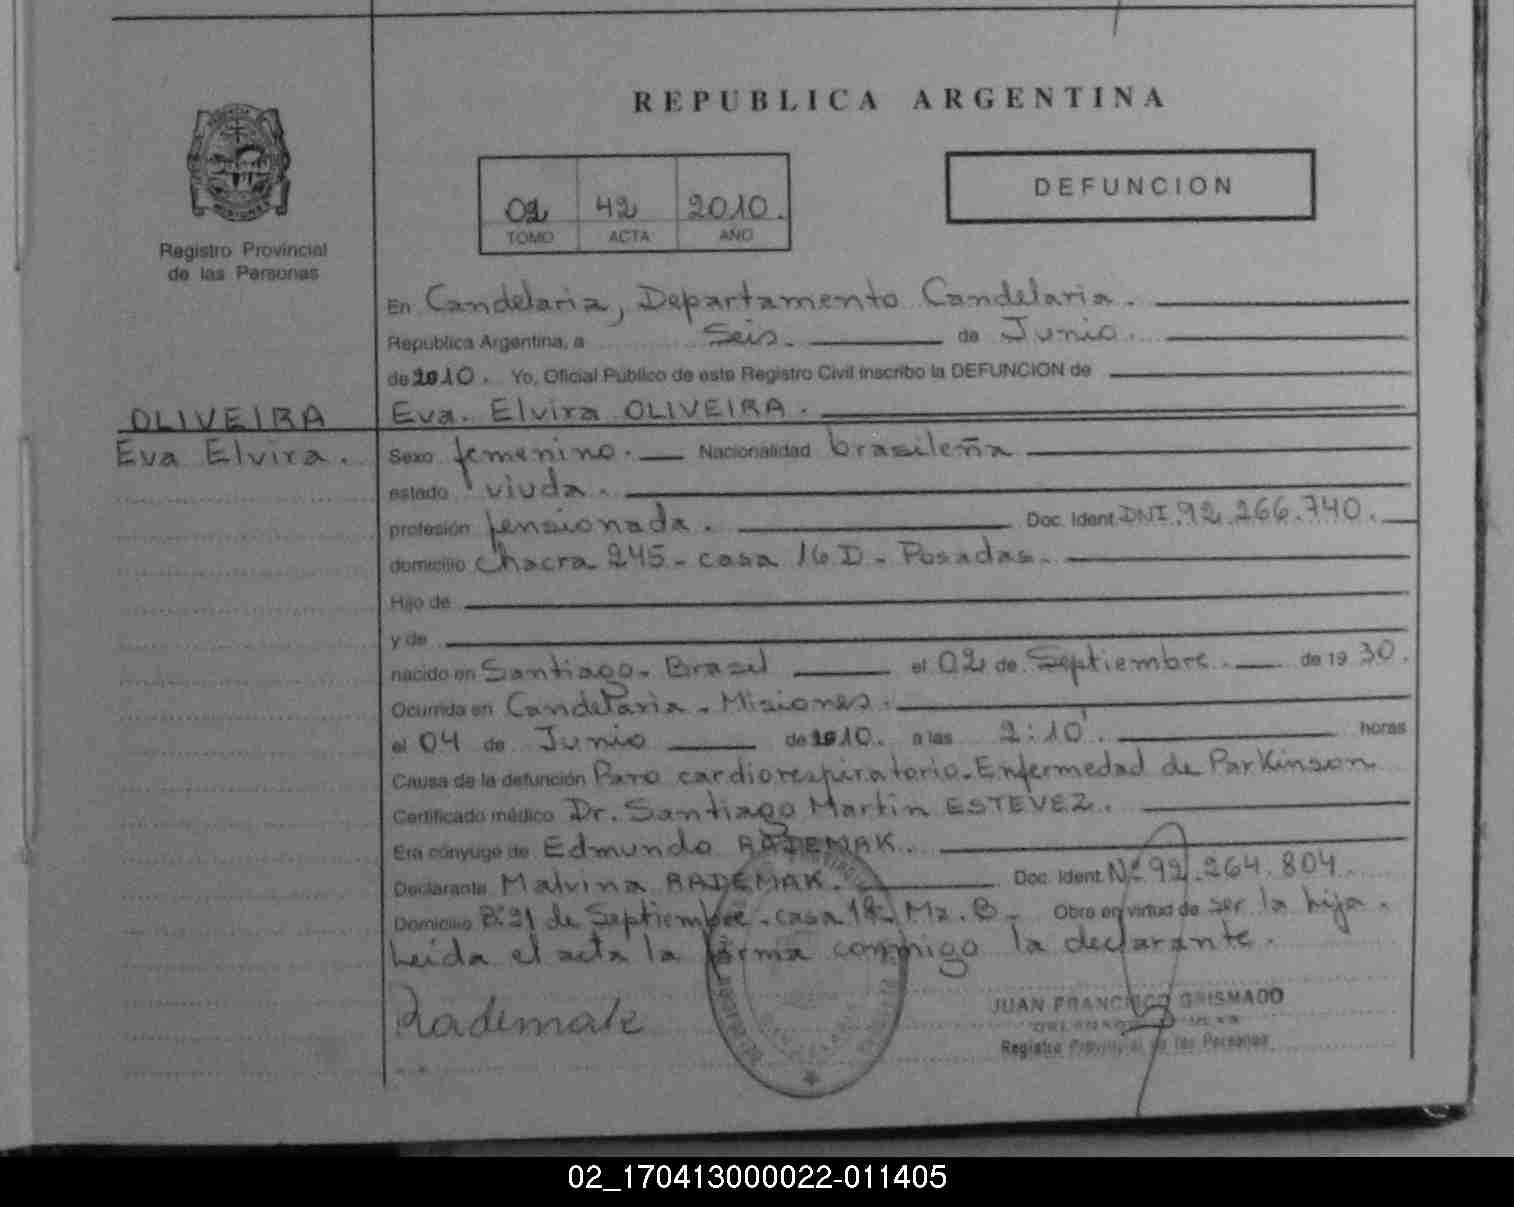 REPUBLICA ARGENTINA
DEFUNCION
02 42 2010.
TOMO ACTA AÑO
Registro Provincial
de las Personas
En Candelaria, Departamento Candelaria.
Republica Argentina, a Seis. de Junio.
de 2010. Yo, Oficial Publico de este Registro Civil inscribo la DEFUNCION de
OLIVEIRA
Eva Elvira.
Eva. Elvira OLIVEIRA.
Sexo femenino. Nacionalidad brasileña
estado viuda.
profesión pensionada. Doc. Ident. DNI. 92.266.740.
domicilio Chacra 245 - casa 16 D - Posadas.
Hijo de
y de
nacido en Santiago - Brasil el 02 de Septiembre. de 19 30.
Ocurrida en Candelaria - Misiones.
el 04 de Junio de 2010. a las 2:10' horas
Causa de la defunción Paro cardiorespiratorio. Enfermedad de Parkinson
Certificado médico Dr. Santiago Martin ESTEVEZ.
Era cónyuge de Edmundo RADEMAK.
Declarante Malvina RADEMAK. Doc. Ident. Nº 92.264.804.
Domicilio Bº 21 de Septiembre - casa 18 - Mz. B - Obra en virtud de ser la hija.
Leida el acta la firma conmigo la declarante.
Rademak
JUAN FRANCISCO GRISMADO
Registro Provincial de las Personas
02_170413000022-011405